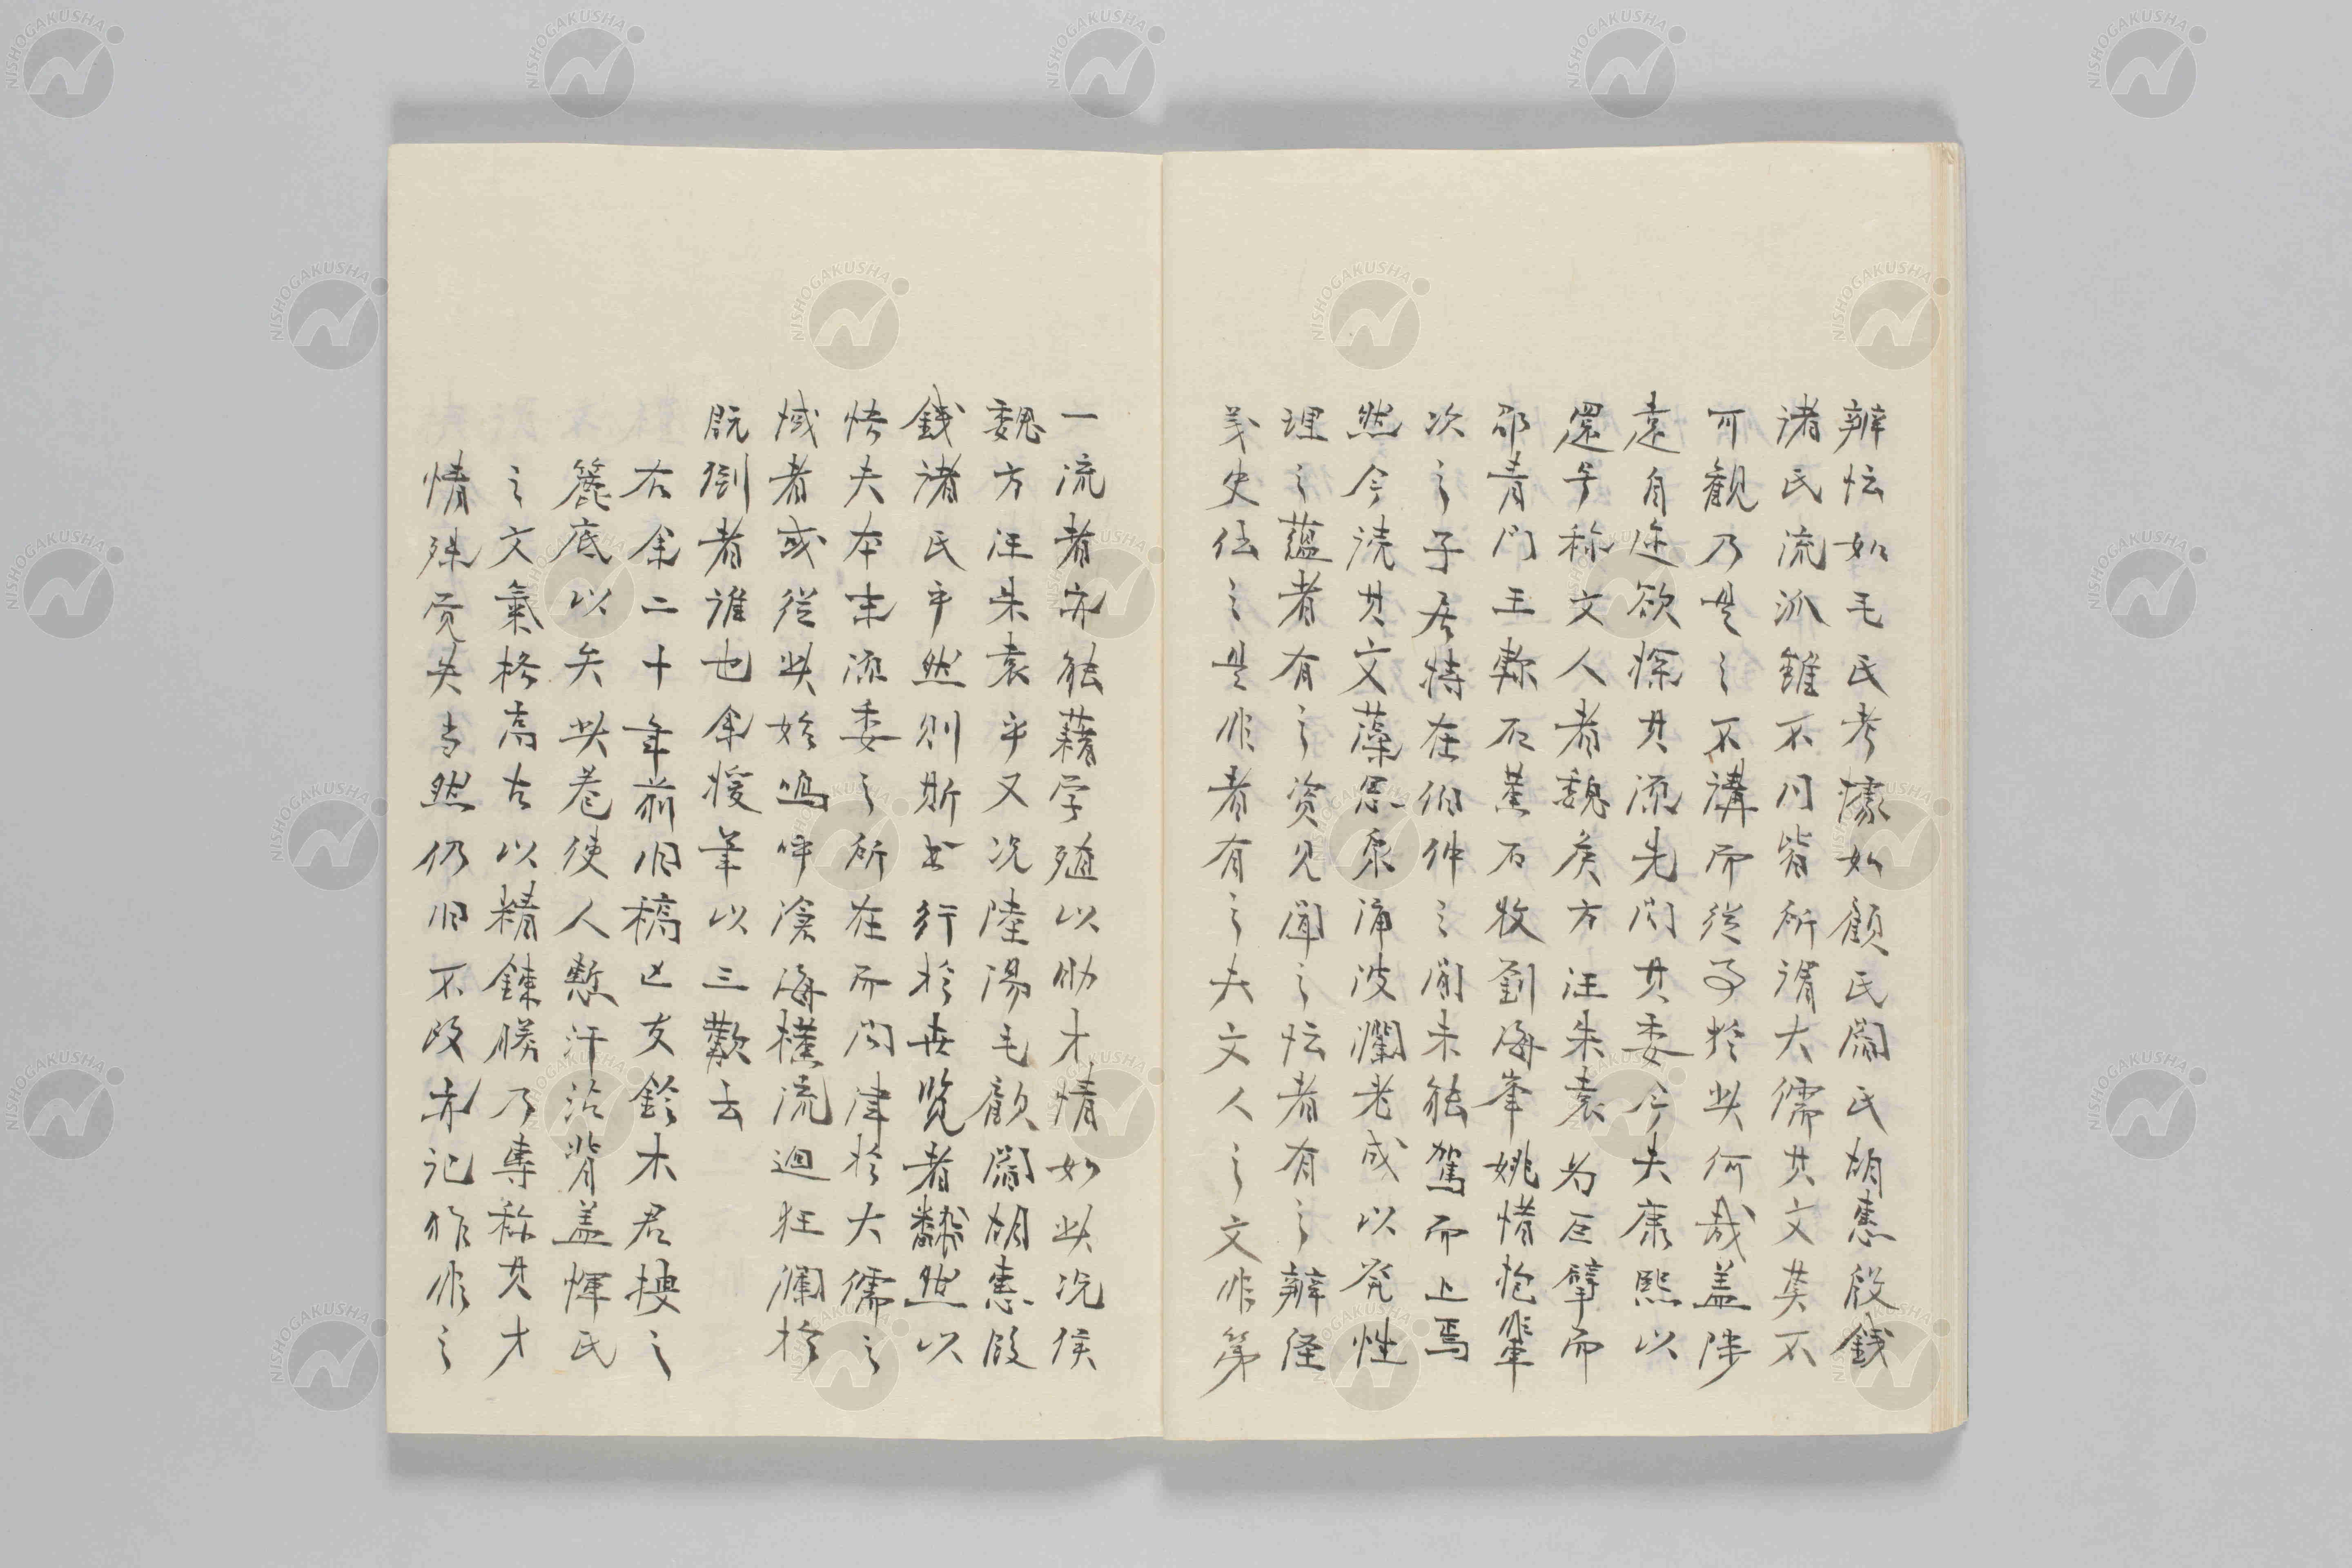 辨忲如毛氏考據如顧氏閻氏胡惠段錢
諸氏流派雖不同皆所謂大儒其文莫不
可觀乃是之不講而從事於此何哉蓋陟
遠自迩欲探其流先問其委今夫康熙以
還号称文人者魏矦方汪朱袁为巨擘而
邵青門王惕甫姜石牧劉海峯姚惜抱輩
次之子居特在伯仲之間未能駕而上焉
然今読其文藻思泉涌波瀾老成以発性
理之蘊者有之资见聞之忲者有之辨経
義史伝之是非者有之夫文人之文非第
一流者亦能藉学殖以助才情如此况侯
魏方汪朱袁乎又况陸湯毛顧閻胡惠段
錢諸氏乎然則斯书行於世览者飜然以
悟夫本末流委之所在而问津於大儒之
域者或従此始嗚呼滄海横流迴狂瀾於
既倒者谁也余援筆以三歎云
右余二十年前旧稿亡友鈴木君授之
簏底以矢此卷使人慙汗沾背蓋恽氏
之文氣格高古以精鍊勝乃専称其才
情殊觉失当然仍旧不改亦記昨非之